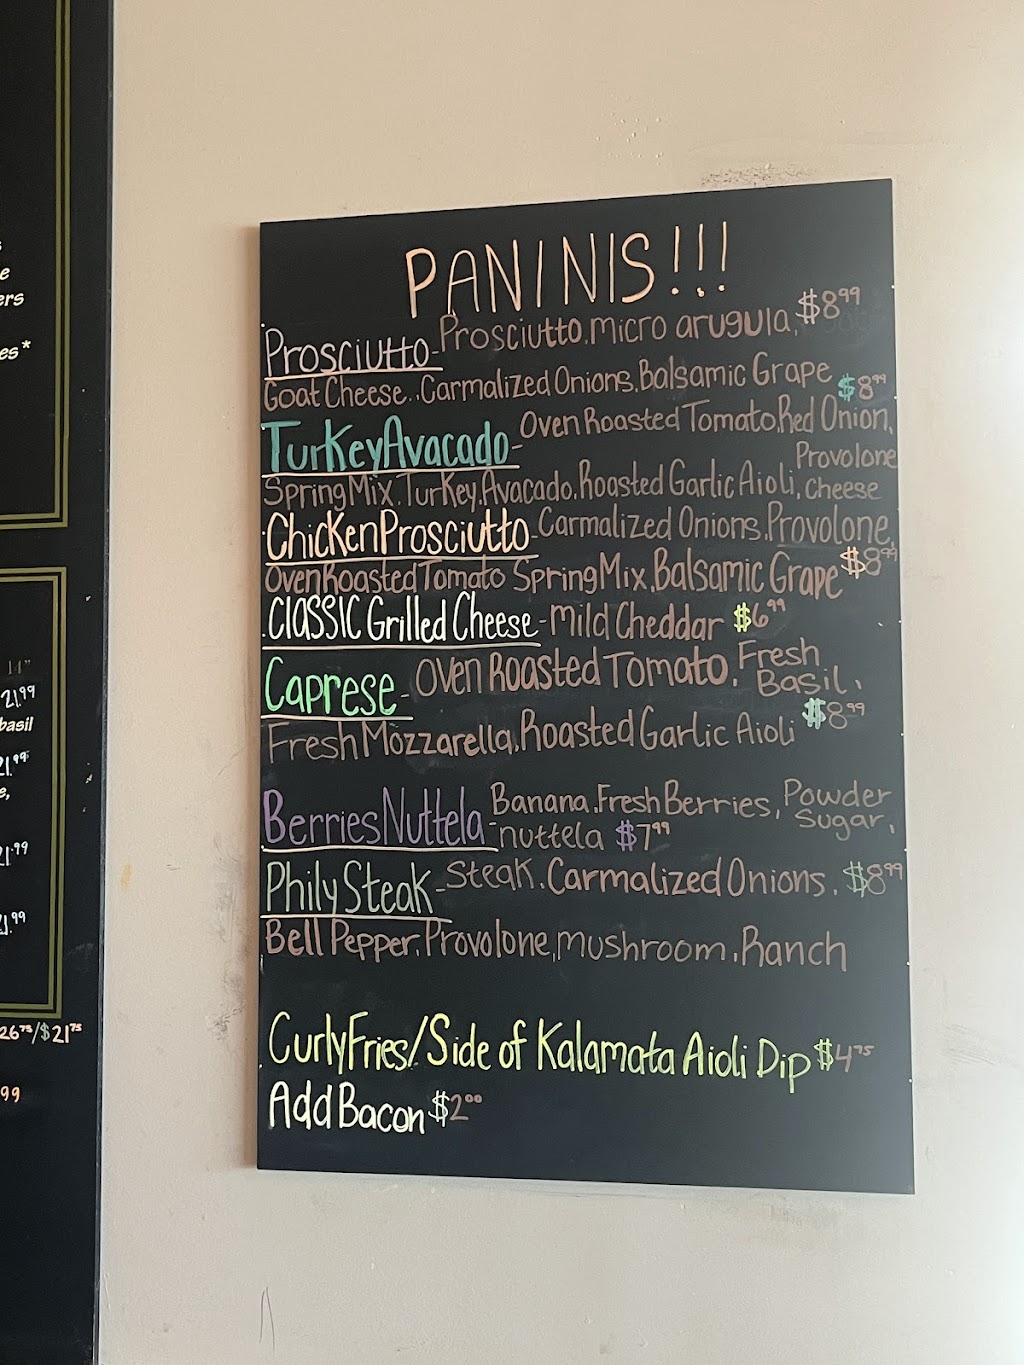 PANINIS!!!
Prosciutto- Prosciutto, micro arugula, $8.99
Goat Cheese, Carmalized Onions, Balsamic Grape
Turkey Avacado- Oven Roasted Tomato, Red Onion, $8.99
Spring Mix, Turkey, Avacado, Roasted Garlic Aioli, Provolone cheese
Chicken Prosciutto- Carmalized Onions, Provolone,
Oven Roasted Tomato Spring Mix, Balsamic Grape $8.99
CLASSIC Grilled Cheese- Mild Cheddar $6.99
Caprese- Oven Roasted Tomato, Fresh Basil,
Fresh Mozzarella, Roasted Garlic Aioli $8.99
Berries Nuttela- Banana, Fresh Berries, Powder Sugar,
nuttela $7.99
Phily Steak- Steak, Carmalized Onions, $8.99
Bell Pepper, Provolone, mushroom, Ranch
Curly Fries/Side of Kalamata Aioli Dip $4.75
Add Bacon $2.00
ers
es*
14"
21.99
basil
21.99
21.99
21.99
26.75/$21.75
99